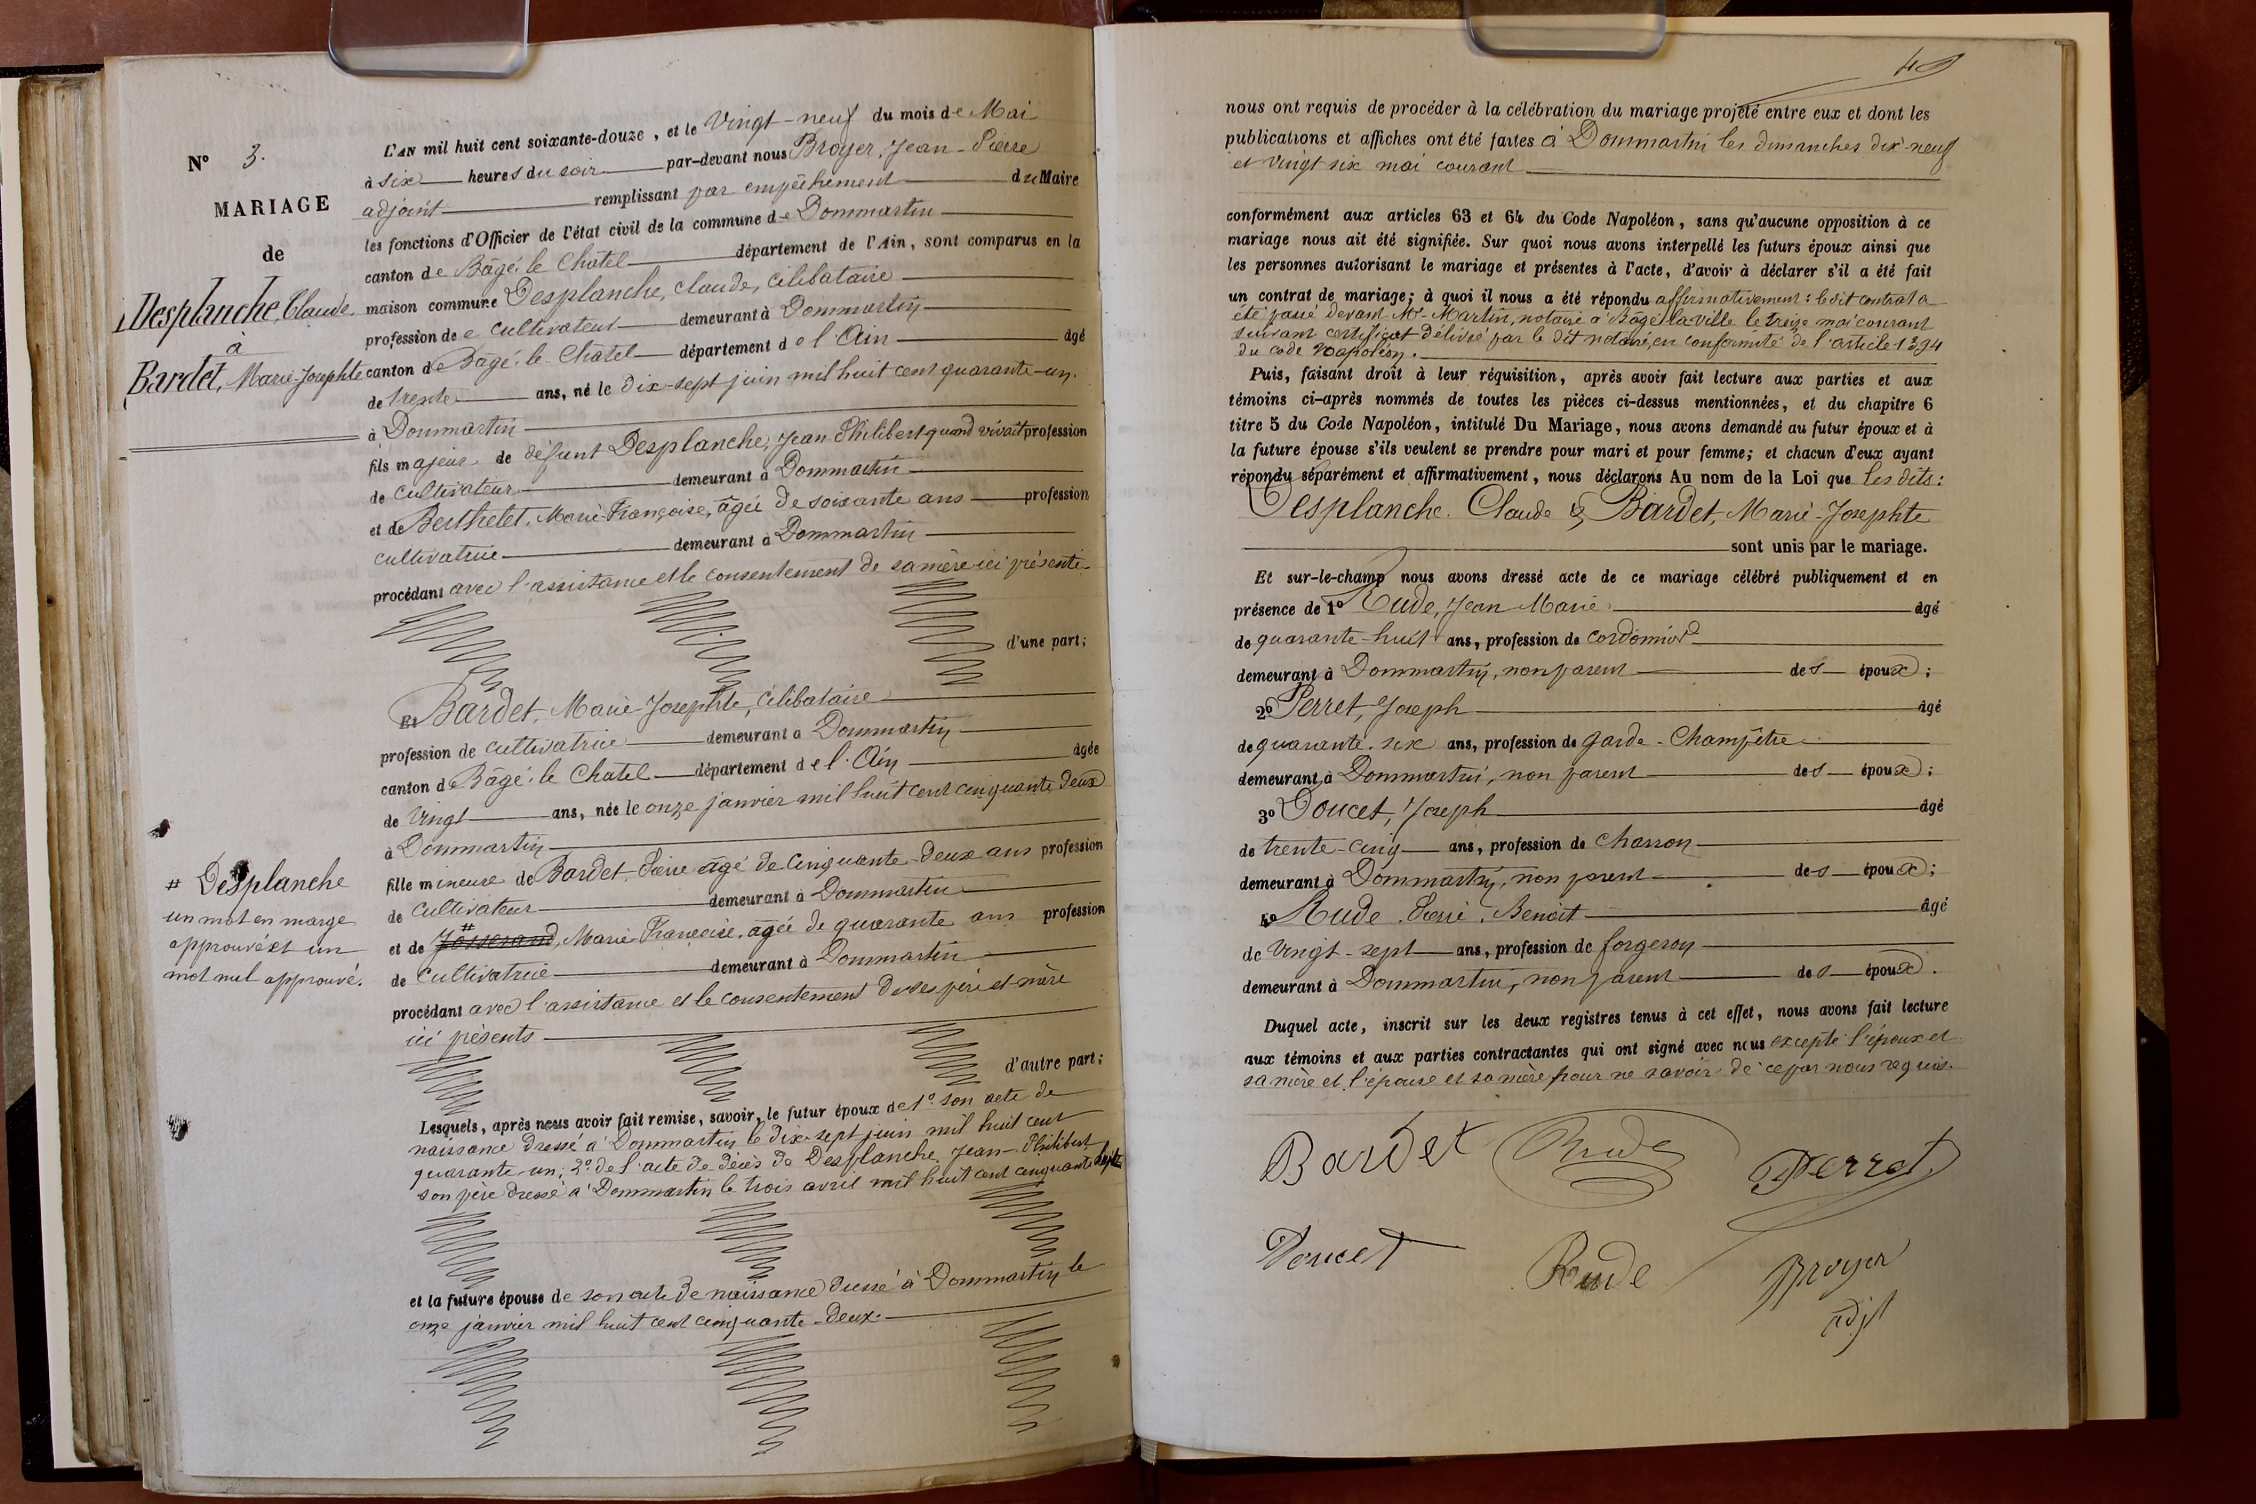 N° 3.
MARIAGE
de
Desplanche, Claude
à
Bardet, Marie-Josephte
L'AN mil huit cent soixante-douze, et le Vingt-neuf du mois de Mai
à six heures du soir par-devant nous Broyer, Jean-Pierre
adjoint remplissant par empêchement du Maire
les fonctions d'Officier de l'état civil de la commune de Dommartin
canton de Bâgé-le-Chatel département de l'Ain, sont comparus en la
maison commune Desplanche, Claude, célibataire
profession de cultivateur demeurant à Dommartin
canton de Bagé-le-Chatel département de l'Ain âgé
de trente ans, né le dix-sept juin mil huit cent quarante-un.
à Dommartin
fils majeur de défunt Desplanche, Jean Philibert quand vivait profession
de cultivateur demeurant à Dommartin
et de Berthelet, Marie Françoise, âgée de soixante ans profession
cultivatrice demeurant à Dommartin
procédant avec l'assistance et le consentement de sa mère ici présente
d'une part;
Et Bardet, Marie Josephte, célibataire
profession de cultivatrice demeurant à Dommartin
canton de Bâgé-le-Chatel département de l'Ain âgée
de Vingt ans, née le onze janvier mil huit cent cinquante-deux
à Dommartin
fille mineure de Bardet, Pierre âgé de Cinquante-deux ans profession
de cultivateur demeurant à Dommartin
et de # Josserand, Marie Françoise, agée de quarante ans profession
de cultivatrice demeurant à Dommartin
procédant avec l'assistance et le consentement de ses père et mère
ici présents
d'autre part;
# Desplanche
un mot en marge
approuvé et un
mot nul approuvé.
Lesquels, après nous avoir fait remise, savoir, le futur époux de 1° son acte de
naissance dressé à Dommartin le dix-sept juin mil huit cent
quarante-un; 2° de l'acte de décès de Desplanche, Jean-Philibert
son père dressé à Dommartin le trois avril mil huit cent cinquante
et la future épouse de son acte de naissance dressé à Dommartin le
onze janvier mil huit cent cinquante-deux.
49
nous ont requis de procéder à la célébration du mariage projeté entre eux et dont les
publications et affiches ont été faites à Dommartin les dimanches dix-neuf
et vingt six mai courant
conformément aux articles 63 et 64 du Code Napoléon, sans qu'aucune opposition à ce
mariage nous ait été signifiée. Sur quoi nous avons interpellé les futurs époux ainsi que
les personnes autorisant le mariage et présentes à l'acte, d'avoir à déclarer s'il a été fait
un contrat de mariage; à quoi il nous a été répondu affirmativement: le dit contrat a
été passé devant Me Martin, notaire à Bâgé-la-Ville le treize mai courant
suivant certificat délivré par le dit notaire, en conformité de l'article 1394
du code Napoléon.
Puis, faisant droit à leur réquisition, après avoir fait lecture aux parties et aux
témoins ci-après nommés de toutes les pièces ci-dessus mentionnées, et du chapitre 6
titre 5 du Code Napoléon, intitulé Du Mariage, nous avons demandé au futur époux et à
la future épouse s'ils veulent se prendre pour mari et pour femme; et chacun d'eux ayant
répondu séparément et affirmativement, nous déclarons Au nom de la Loi que les dits:
Desplanche, Claude & Bardet, Marie-Josephte
sont unis par le mariage.
Et sur-le-champ nous avons dressé acte de ce mariage célébré publiquement et en
présence de 1° Rude, Jean Marie âgé
de quarante-huit ans, profession de cordonnier
demeurant à Dommartin, non parent des époux;
2° Perret, Joseph âgé
de quarante-six ans, profession de garde-Champêtre
demeurant à Dommartin, non parent des époux;
3° Doucet, Joseph âgé
de trente-cinq ans, profession de charron
demeurant à Dommartin, non parent des époux;
4° Rude, Pierre, Benoit âgé
de Vingt-sept ans, profession de forgeron
demeurant à Dommartin, non parent des époux.
Duquel acte, inscrit sur les deux registres tenus à cet effet, nous avons fait lecture
aux témoins et aux parties contractantes qui ont signé avec nous excepté l'époux et
sa mère et l'épouse et sa mère pour ne savoir de ce par nous requis.
Bardet Rude Perret
Doucet Rude Broyer
adjt